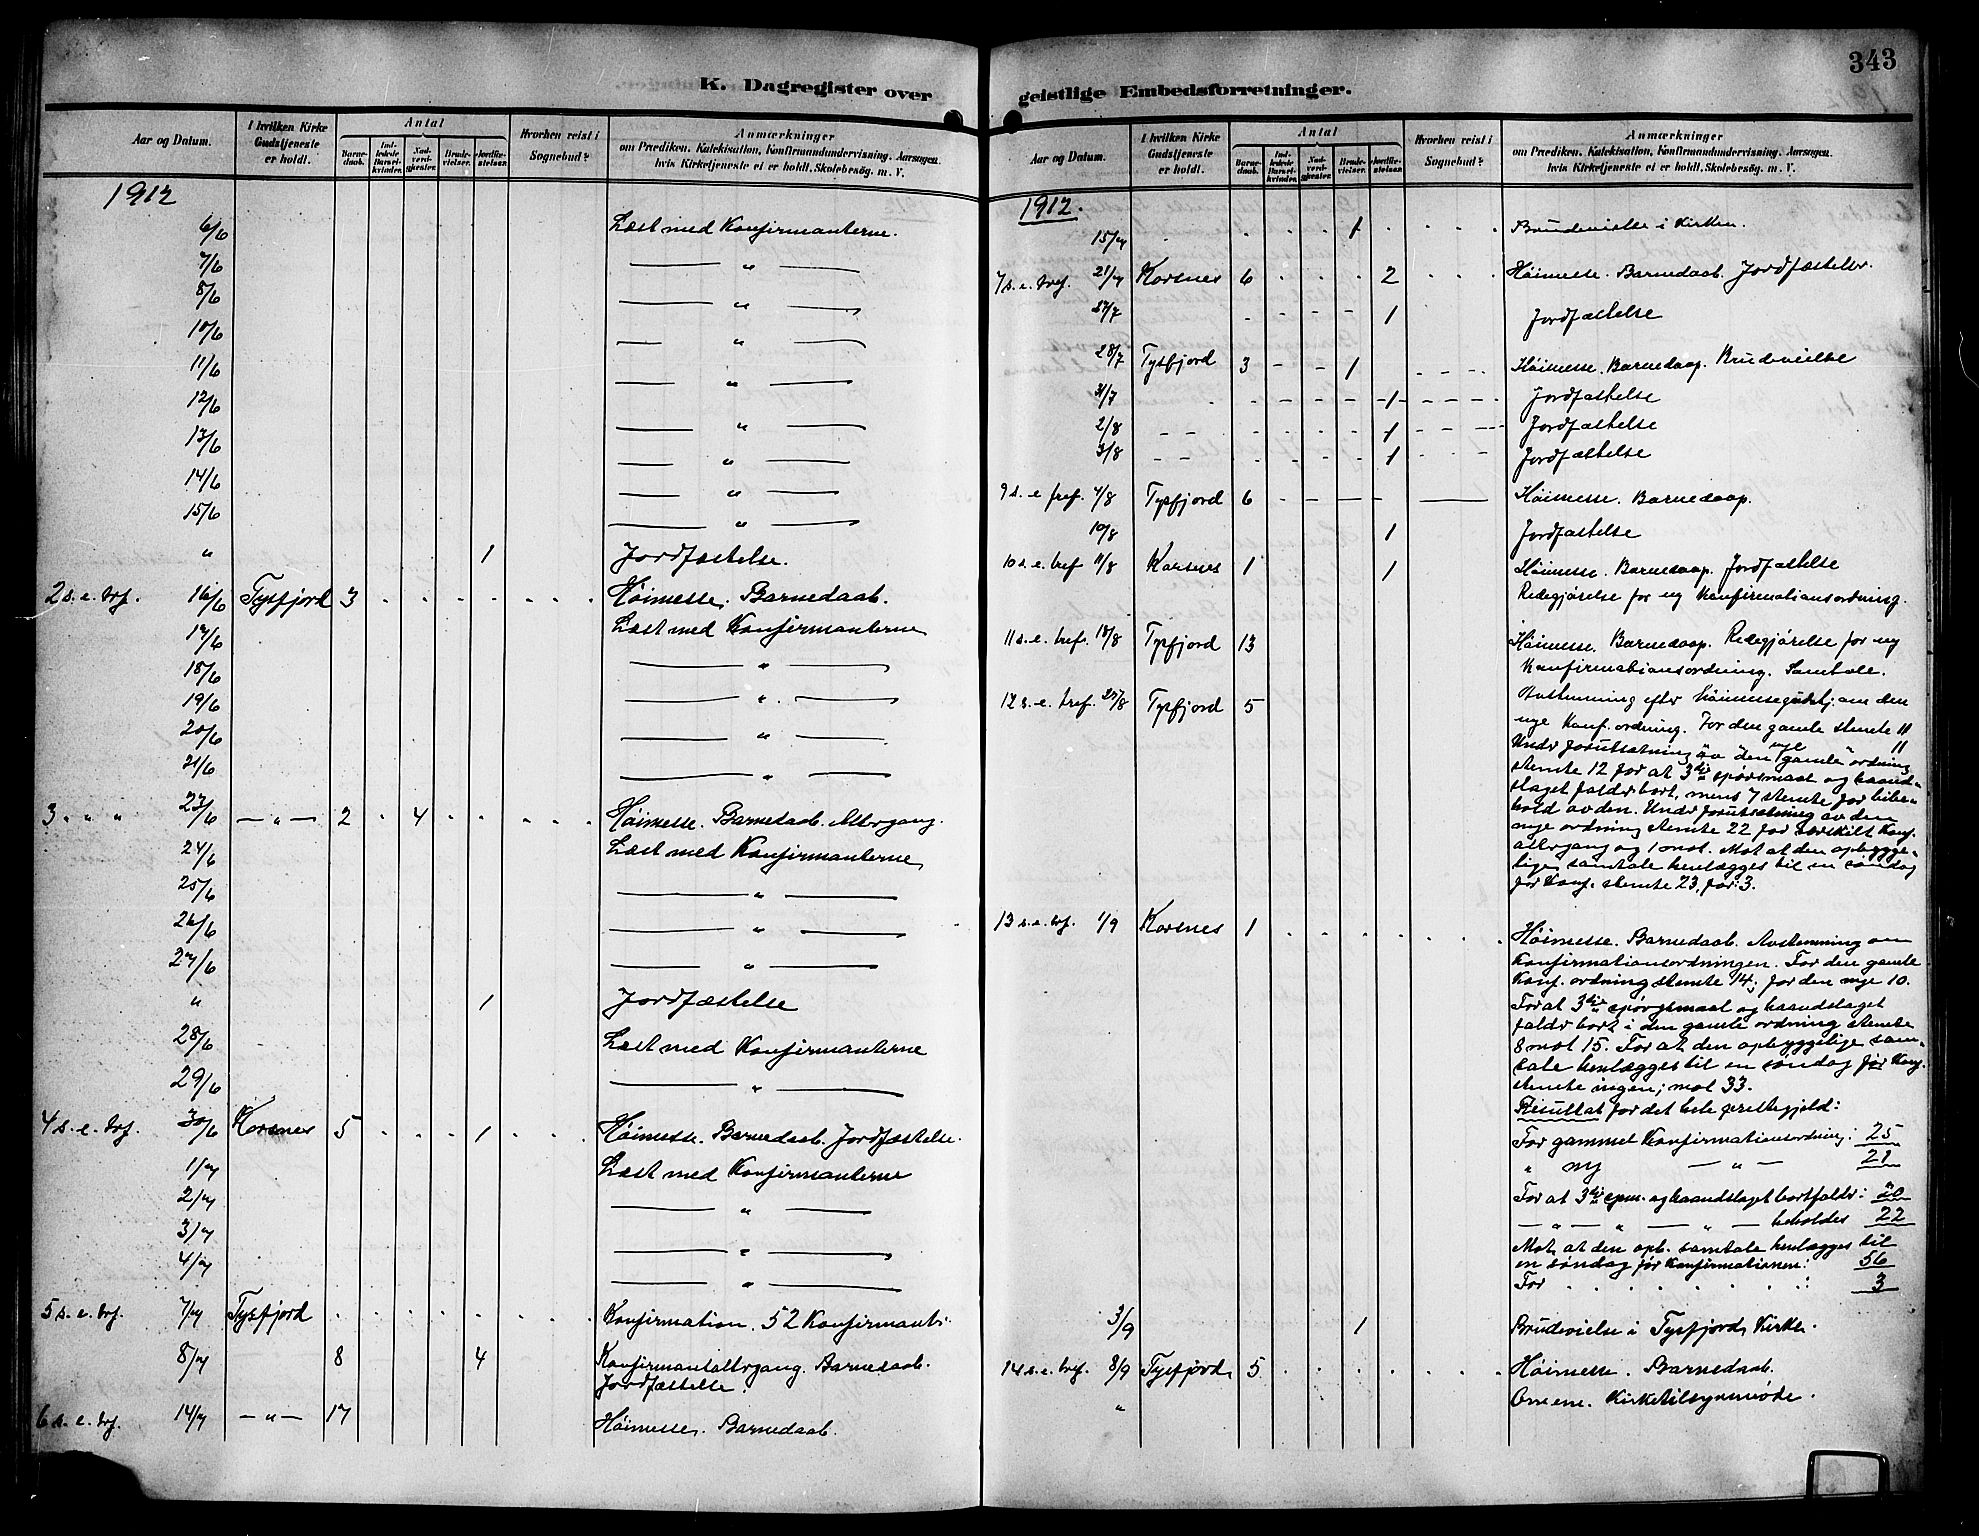 343
K. Dagregister over
geistlige Embedsforretninger.
Aar og Datum.
I hvilken Kirke Gudstjeneste er holdt.
Antal
Barnedaab.
Indledede Barselkvinder.
Nadverdgjester.
Brudevielser.
Jordfæstelser.
Hvorhen reist i Sognebud?
Anmærkninger
om Prædiken, Katekisation, Konfirmandundervisning, Aarsagen,
hvis Kirketjeneste ei er holdt, Skolebesøg, m. v.
1912
6/6 Læst med Konfirmanterne.
7/6 — " —
8/6 — " —
10/6 — " —
11/6 — " —
12/6 — " —
13/6 — " —
14/6 — " —
15/6 — " —
" 1 Jordfæstelse.
2 s. e. tref. 16/6 Tysfjord 3 Höimesse. Barnedaab.
17/6 Læst med Konfirmanterne
18/6 — " —
19/6 — " —
20/6 — " —
21/6 — " —
3 " " 23/6 — " — 2 4 Höimesse. Barnedaab. Altergang.
24/6 Læst med Konfirmanterne
25/6 — " —
26/6 — " —
27/6 — " —
" 1 Jordfæstelse
28/6 Læst med Konfirmanterne
29/6 — " —
4 s. e. tref. 30/6 Korsnes 5 1 Höimesse. Barnedaab. Jordfæstelse.
1/7 Læst med Konfirmanterne
2/7 — " —
3/7 — " —
4/7 — " —
5 s. e. tref. 7/7 Tysfjord Konfirmation. 52 Konfirmant.
8/7 8 4 Konfirmantaltergang. Barnedaab.
Jordfæstelse.
6 s. e. tref. 14/7 — " — 17 Höimesse. Barnedaab.
Aar og Datum.
I hvilken Kirke Gudstjeneste er holdt.
Antal
Barnedaab.
Indledede Barselkvinder.
Nadverdgjester.
Brudevielser.
Jordfæstelser.
Hvorhen reist i Sognebud?
Anmærkninger
om Prædiken, Katekisation, Konfirmandundervisning, Aarsagen,
hvis Kirketjeneste ei er holdt, Skolebesøg, m. v.
1912.
15/7 1 Brudevielse i Kirken.
7 s. e. tref. 21/7 Korsnes 6 2 Höimesse. Barnedaab. Jordfæstelser.
27/7 1 Jordfæstelse
28/7 Tysfjord 3 1 Höimesse. Barnedaap. Brudevielse
31/7 1 Jordfæstelse
2/8 1 Jordfæstelse
3/8 1 Jordfæstelse
9 s. e. tref. 4/8 Tysfjord 6 Höimesse. Barnedaap.
10/8 1 Jordfæstelse
10 s. e. tref 11/8 Korsnes 1 1 Höimesse. Barnedaap. Jordfæstelse
Redegjörelse for ny Konfirmationsordning.
11 s. e. tref. 18/8 Tysfjord 13 Höimesse. Barnedaap. Redegjörelse for ny
Konfirmationsordning. Samtale.
12 s. e. tref. 25/8 Tysfjord 5 Avstemning efter Höimessegudstj. om den
nye Konf. ordning. For den gamle stemte 11
" " nye " 11
Under forutsætning av den gamle ordning
stemte 12 for at 3die spörsmaal og haand-
slaget falder bort, mens 7 stemte for bibe-
hold av den. Under forutsætning av den
nye ordning stemte 22 for særskilt Konf.
altergang og 1 mot. Mot at den opbygge-
lige samtale henlægges til en söndag
för Konf. stemte 23, for: 3.
13 s. e. tref. 1/9 Korsnes 1 Höimesse. Barnedaab. Avstemning om
Konfirmationsordningen. For den gamle
Konf. ordning stemte 14; for den nye 10.
For at 3die spörgsmaal og haandslaget
falder bort i den gamle ordning stemte
8 mot 15. For at den opbyggelige sam-
tale henlægges til en söndag för Konf.
stemte ingen; mot 33.
Resultat for det hele prestegjeld:
For gammel Konfirmationsordning: 25
" ny — " — 21
For at 3die spm. og haandslaget bortfalder: 20
— " — " — " — beholdes 22
Mot at den opb. samtale henlægges til
en söndag för Konfirmationen: 56
For . . . . . . : 3
3/9 1 Brudevielse i Tysfjord Kirke.
14 s. e. tref. 8/9 Tysfjord 5 Höimesse. Barnedaab.
" Kirketilsynsmöde.